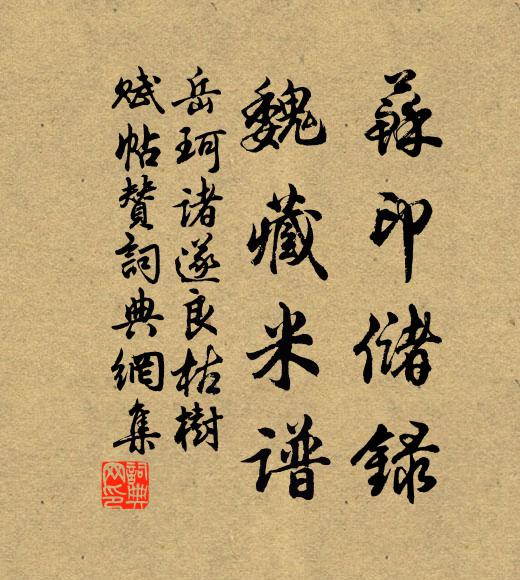 蘇印儲録
魏藏米譜
岳珂諸遂良枯樹
賦帖贊詞典網集
詞典網印